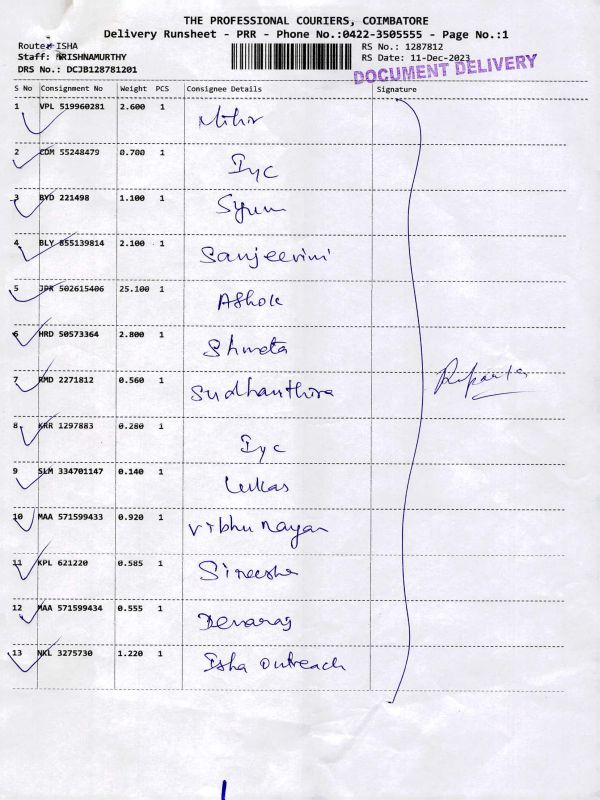 THE PROFESSIONAL COURIERS, COIMBATORE
Delivery Runsheet - PRR - Phone No.:0422-3505555 - Page No.:1
Route: ISHA RS No.: 1287812
Staff: KRISHNAMURTHY RS Date: 11-Dec-2023
DRS No.: DCJB128781201 DOCUMENT DELIVERY
S No Consignment No Weight PCS Consignee Details Signature
1 VPL 519960281 2.600 1 Mihir
2 COM 55248479 0.700 1 Iyc
3 BYD 221498 1.100 1
4 BLY 855139814 2.100 1 Sanjeevini
5 JPR 502615406 25.100 1 Ashok
6 HRD 50573364 2.800 1 Shweta
7 RMD 2271812 0.560 1 Sudhanthira
8 KRR 1297883 0.280 1 Iyc
9 SLM 334701147 0.140 1 Lukas
10 MAA 571599433 0.920 1 Vibhu Nayan
11 KPL 621220 0.585 1 Sireesha
12 MAA 571599434 0.555 1 Devaraj
13 NKL 3275730 1.220 1 Isha Outreach